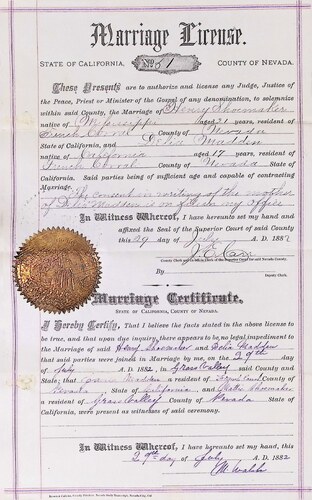 Marriage License.
STATE OF CALIFORNIA, No. 51 COUNTY OF NEVADA.
These Presents are to authorize and license any Judge, Justice
of the Peace, Priest or Minister of the Gospel of any denomination, to solemnize
within said County, the Marriage of Henry Shoemaker
native of Mississippi aged 21 years, resident of
French Corral County of Nevada
State of California, and Delia Madden
native of California aged 17 years, resident of
French Corral County of Nevada State of
California. Said parties being of sufficient age and capable of contracting
Marriage. The consent in writing of the mother
of Delia Madden is on file in my office
In Witness Whereof, I have hereunto set my hand and
affixed the Seal of the Superior Court of said County
this 29 day of July A. D. 1882
County Clerk and Clerk of the Superior Court for said Nevada County.
By
Deputy Clerk.
Marriage Certificate.
STATE OF CALIFORNIA, COUNTY OF NEVADA.
I Hereby Certify, That I believe the facts stated in the above license to
be true, and that upon due inquiry, there appears to be no legal impediment to
the Marriage of said Henry Shoemaker and Delia Madden
that said parties were joined in Marriage by me, on the 29th day
of July A. D. 1882, in Grass Valley said County and
State; that Madden a resident of French Corral County of
Nevada State of California, and Shoemaker
a resident of Grass Valley County of Nevada State of
California, were present as witnesses of said ceremony.
In Witness Whereof, I have hereunto set my hand, this
29th day of July A. D. 1882